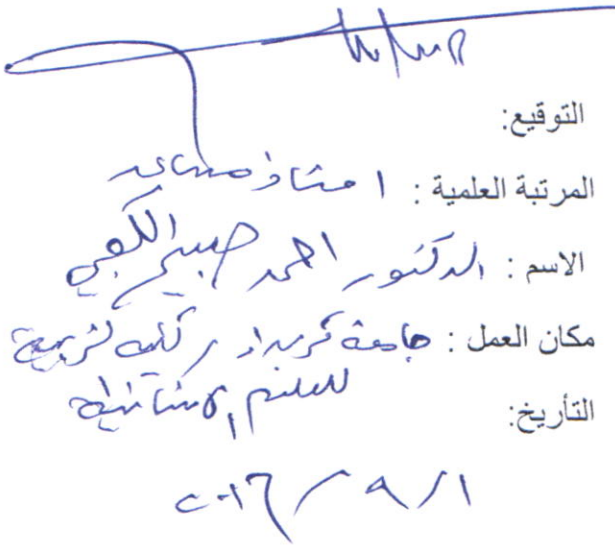 التوقيع:
المرتبة العلمية : استاذ مساعد
الاسم : الدكتور احمد صبيح الكعبي
مكان العمل : جامعة كربلاء / كلية التربية
للعلوم الانسانية
التأريخ:
٢٠١٦ / ٩ / ١